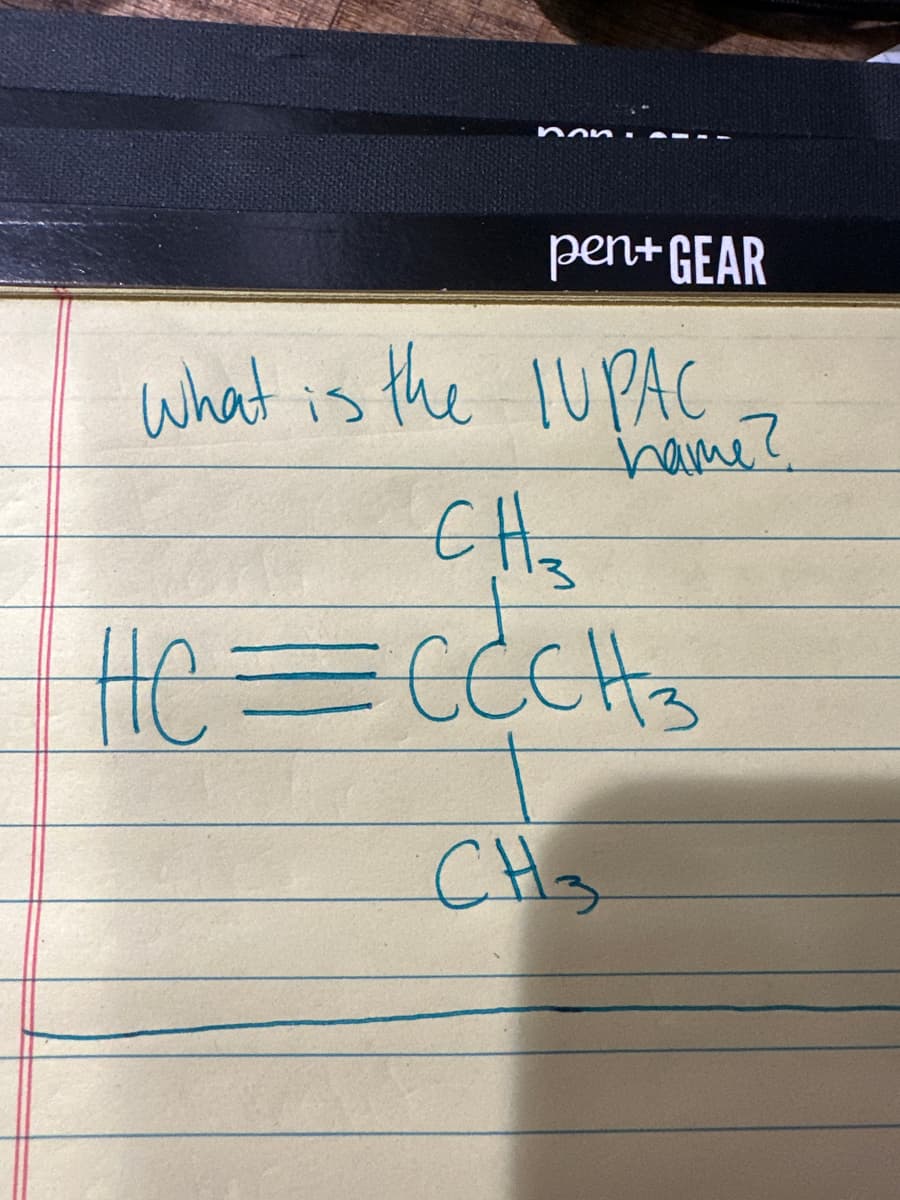 pen+ GEAR
What is the IUPAC
name?
CH₃
HC≡CCCH₃
CH₃